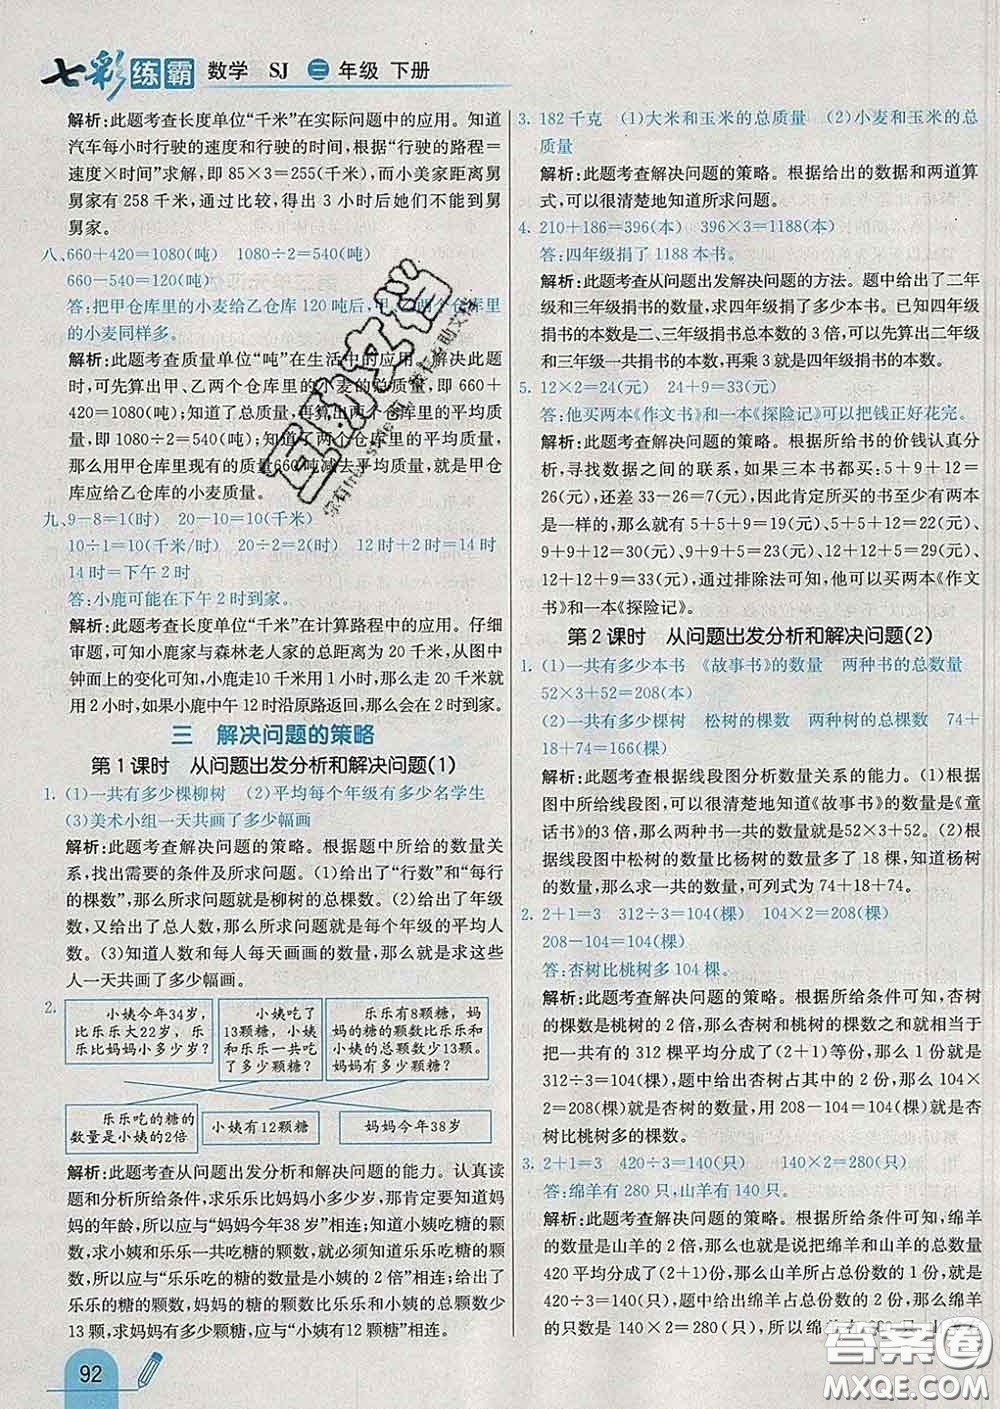 七彩练霸 数学 SJ 三年级 下册
解析:此题考查长度单位“千米”在实际问题中的应用。知道
汽车每小时行驶的速度和行驶的时间,根据“行驶的路程=
速度×时间”求解,即 85×3=255(千米),而小美家距离舅
舅家有 258 千米,通过比较,得出 3 小时后她们不能到
舅舅家。
八、660+420=1080(吨) 1080÷2=540(吨)
660-540=120(吨)
答:把甲仓库里的小麦给乙仓库 120 吨后,甲、乙两个仓库里
的小麦同样多。
解析:此题考查质量单位“吨”在生活中的应用。解决此题
时,可先算出甲、乙两个仓库里的小麦的总质量,即 660+
420=1080(吨);知道了总质量,再算出两个仓库里的平均质
量,即 1080÷2=540(吨);知道了两个仓库里的平均质量,
那么用甲仓库里现在的质量660吨减去平均质量,就是甲仓
库应给乙仓库的小麦质量。
九、9-8=1(时) 20-10=10(千米)
10÷1=10(千米/时) 20÷2=2(时) 12时+2时=14时
14时=下午2时
答:小鹿可能在下午2时到家。
解析:此题考查长度单位“千米”在计算路程中的应用。仔细
审题,可知小鹿家与森林老人家的总距离为 20 千米,从图中
钟面上的变化可知,小鹿走10千米用 1 小时,走 20 千米就
用 2 小时,如果小鹿中午 12 时沿原路返回,那么会在 2 时到家。
三 解决问题的策略
第1课时 从问题出发分析和解决问题(1)
1. (1)一共有多少棵柳树 (2)平均每个年级有多少名学生
(3)美术小组一天共画了多少幅画
解析:此题考查解决问题的策略。根据题中所给的数量关
系,找出需要的条件及所求问题。(1)给出了“行数”和“每行
的棵数”,那么所求问题就是柳树的总棵数。(2)给出了年级
数,又给出了总人数,那么所求问题就是每个年级的平均人
数。(3)知道人数和每人每天画画的数量,那么就是求这些
人一天共画了多少幅画。
2.
小姨今年34岁,
比乐乐大22岁,乐
乐比妈妈小多少岁?
小姨吃了
13颗糖,小姨
和乐乐一共吃
了多少颗糖?
乐乐有8颗糖,妈
妈的糖的颗数比小姨
和乐乐的总数少13颗。
妈妈有多少颗糖?
乐乐吃的糖的
数量是小姨的2倍
小姨有12颗糖
妈妈今年38岁
解析:此题考查从问题出发分析和解决问题的能力。认真读
题和分析所给条件,求乐乐比妈妈小多少岁,那肯定要知道妈
妈的年龄,所以应与“妈妈今年38岁”相连;知道小姨吃糖的颗
数,求小姨和乐乐一共吃糖的颗数,就必须知道乐乐吃糖的颗
数,所以应与“乐乐吃的糖的数量是小姨的 2 倍”相连;给出了
乐乐的糖的颗数,妈妈的糖的颗数比小姨和乐乐的总数少
13颗,求妈妈有多少颗糖,应与“小姨有12颗糖”相连。
92
3. 182千克 (1)大米和玉米的总质量 (2)小麦和玉米的总
质量
解析:此题考查解决问题的策略。根据给出的数据和两道算
式,可以很清楚地知道所求问题。
4. 210+186=396(本) 396×3=1188(本)
答:四年级捐了1188本书。
解析:此题考查从问题出发解决问题的方法。题中给出了二年
级和三年级捐书的数量,求四年级捐了多少本书。已知四年级
捐书的本数是二、三年级捐书总本数的 3 倍,可以先算出二年级
和三年级一共捐书的本数,再乘 3 就是四年级捐书的本数。
5. 12×2=24(元) 24+9=33(元)
答:他买两本《作文书》和一本《探险记》可以把钱正好花完。
解析:此题考查解决问题的策略。根据所给书的价钱认真分
析,寻找数据之间的联系,如果三本书都买:5+9+12=
26(元),还差 33-26=7(元),因此肯定所买的书至少有两本
是一样的,那么就有 5+5+9=19(元)、5+5+12=22(元)、
9+9+12=30(元)、9+9+5=23(元)、12+12+5=29(元)、
12+12+9=33(元),通过排除法可知,他可以买两本《作文
书》和一本《探险记》。
第2课时 从问题出发分析和解决问题(2)
1. (1)一共有多少本书 《故事书》的数量 两种书的总数量
52×3+52=208(本)
(2)一共有多少棵树 松树的棵数 两种树的总棵数 74+
18+74=166(棵)
解析:此题考查根据线段图分析数量关系的能力。(1)根据
图中所给线段图,可以很清楚地知道《故事书》的数量是《童
话书》的3倍,那么两种书一共的数量就是52×3+52。(2)根
据线段图中松树的数量比杨树的数量多了 18 棵,知道杨树
的数量,那么求一共的数量,可列式为 74+18+74。
2. 2+1=3 312÷3=104(棵) 104×2=208(棵)
208-104=104(棵)
答:杏树比桃树多 104 棵。
解析:此题考查解决问题的策略。根据所给条件可知,杏树
的棵数是桃树的 2 倍,那么杏树和桃树的棵数之和就相当于
把一共的 312 棵平均分成了(2+1)等份,那么 1 份就是
312÷3=104(棵),题中给出杏树占其中的 2 份,那么就是
104×2=208(棵),所以杏树的数量,用 208-104=104(棵)就是杏
树比桃树多的棵数。
3. 2+1=3 420÷3=140(只) 140×2=280(只)
答:绵羊有 280 只,山羊有 140 只。
解析:此题考查解决问题的策略。根据所给条件可知,绵羊
的数量是山羊的 2 倍,那么就是说把绵羊和山羊的总数量
420 平均分成了(2+1)份,那么山羊所占总份数的 1 份,就是
420÷3=140(只),绵羊所占总份数的 2 份,那么绵羊
的只数是 140×2=280(只),所以绵羊 280 只,山羊
答案圈
MXQE.COM